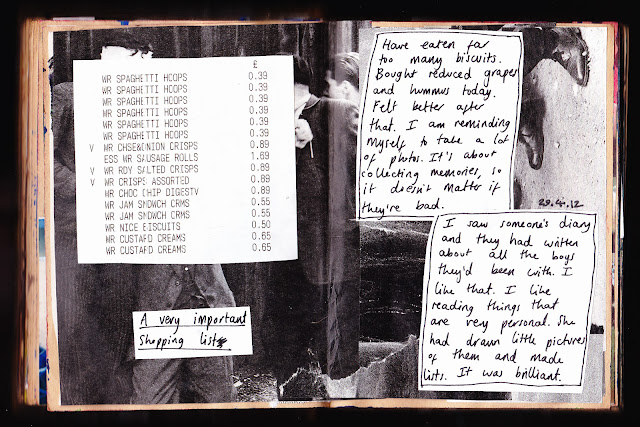 £
WR SPAGHETTI HOOPS 0.39
WR SPAGHETTI HOOPS 0.39
WR SPAGHETTI HOOPS 0.39
WR SPAGHETTI HOOPS 0.39
WR SPAGHETTI HOOPS 0.39
WR SPAGHETTI HOOPS 0.39
V WR CHSE&ONION CRISPS 0.89
ESS WR SAUSAGE ROLLS 1.69
V WR RDY SALTED CRISPS 0.89
V WR CRISPS ASSORTED 0.89
WR CHOC CHIP DIGESTV 0.89
WR JAM SNDWCH CRMS 0.55
WR JAM SNDWCH CRMS 0.55
WR NICE BISCUITS 0.50
WR CUSTARD CREAMS 0.65
WR CUSTARD CREAMS 0.65
A very important
Shopping list
Have eaten far
too many biscuits.
Bought reduced grapes
and hummus today.
Felt better after
that. I am reminding
myself to take a lot
of photos. It's about
collecting memories, so
it doesn't matter if
they're bad.
I saw someone's diary
and they had written
about all the boys
they'd been with. I
like that. I like
reading things that
are very personal. She
had drawn little pictures
of them and made
lists. It was brilliant.